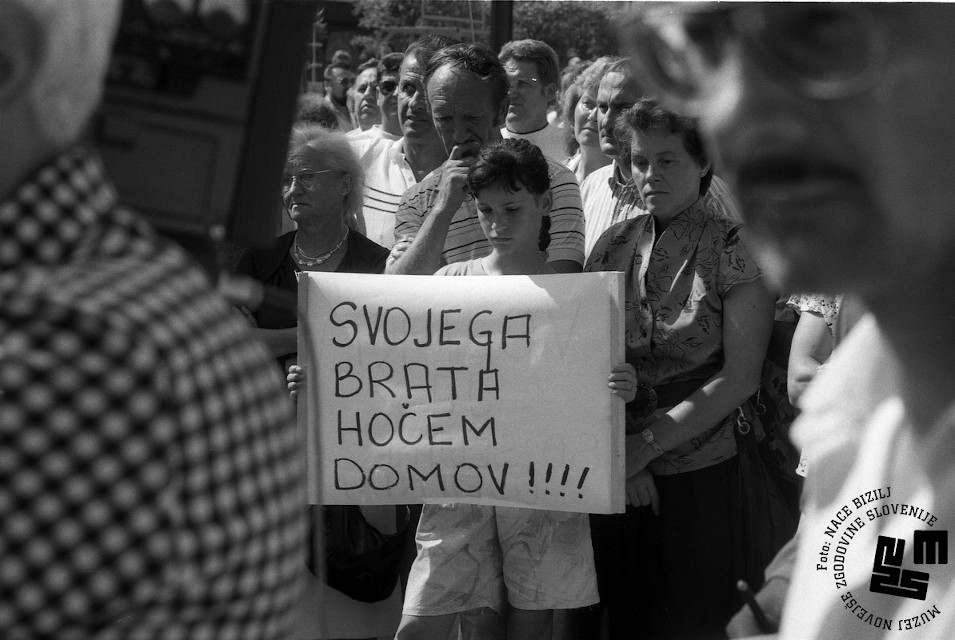 SVOJEGA
BRATA
HOČEM
DOMOV!!!!
Foto: NACE BIZILJ
MUZEJ NOVEJŠE ZGODOVINE SLOVENIJE